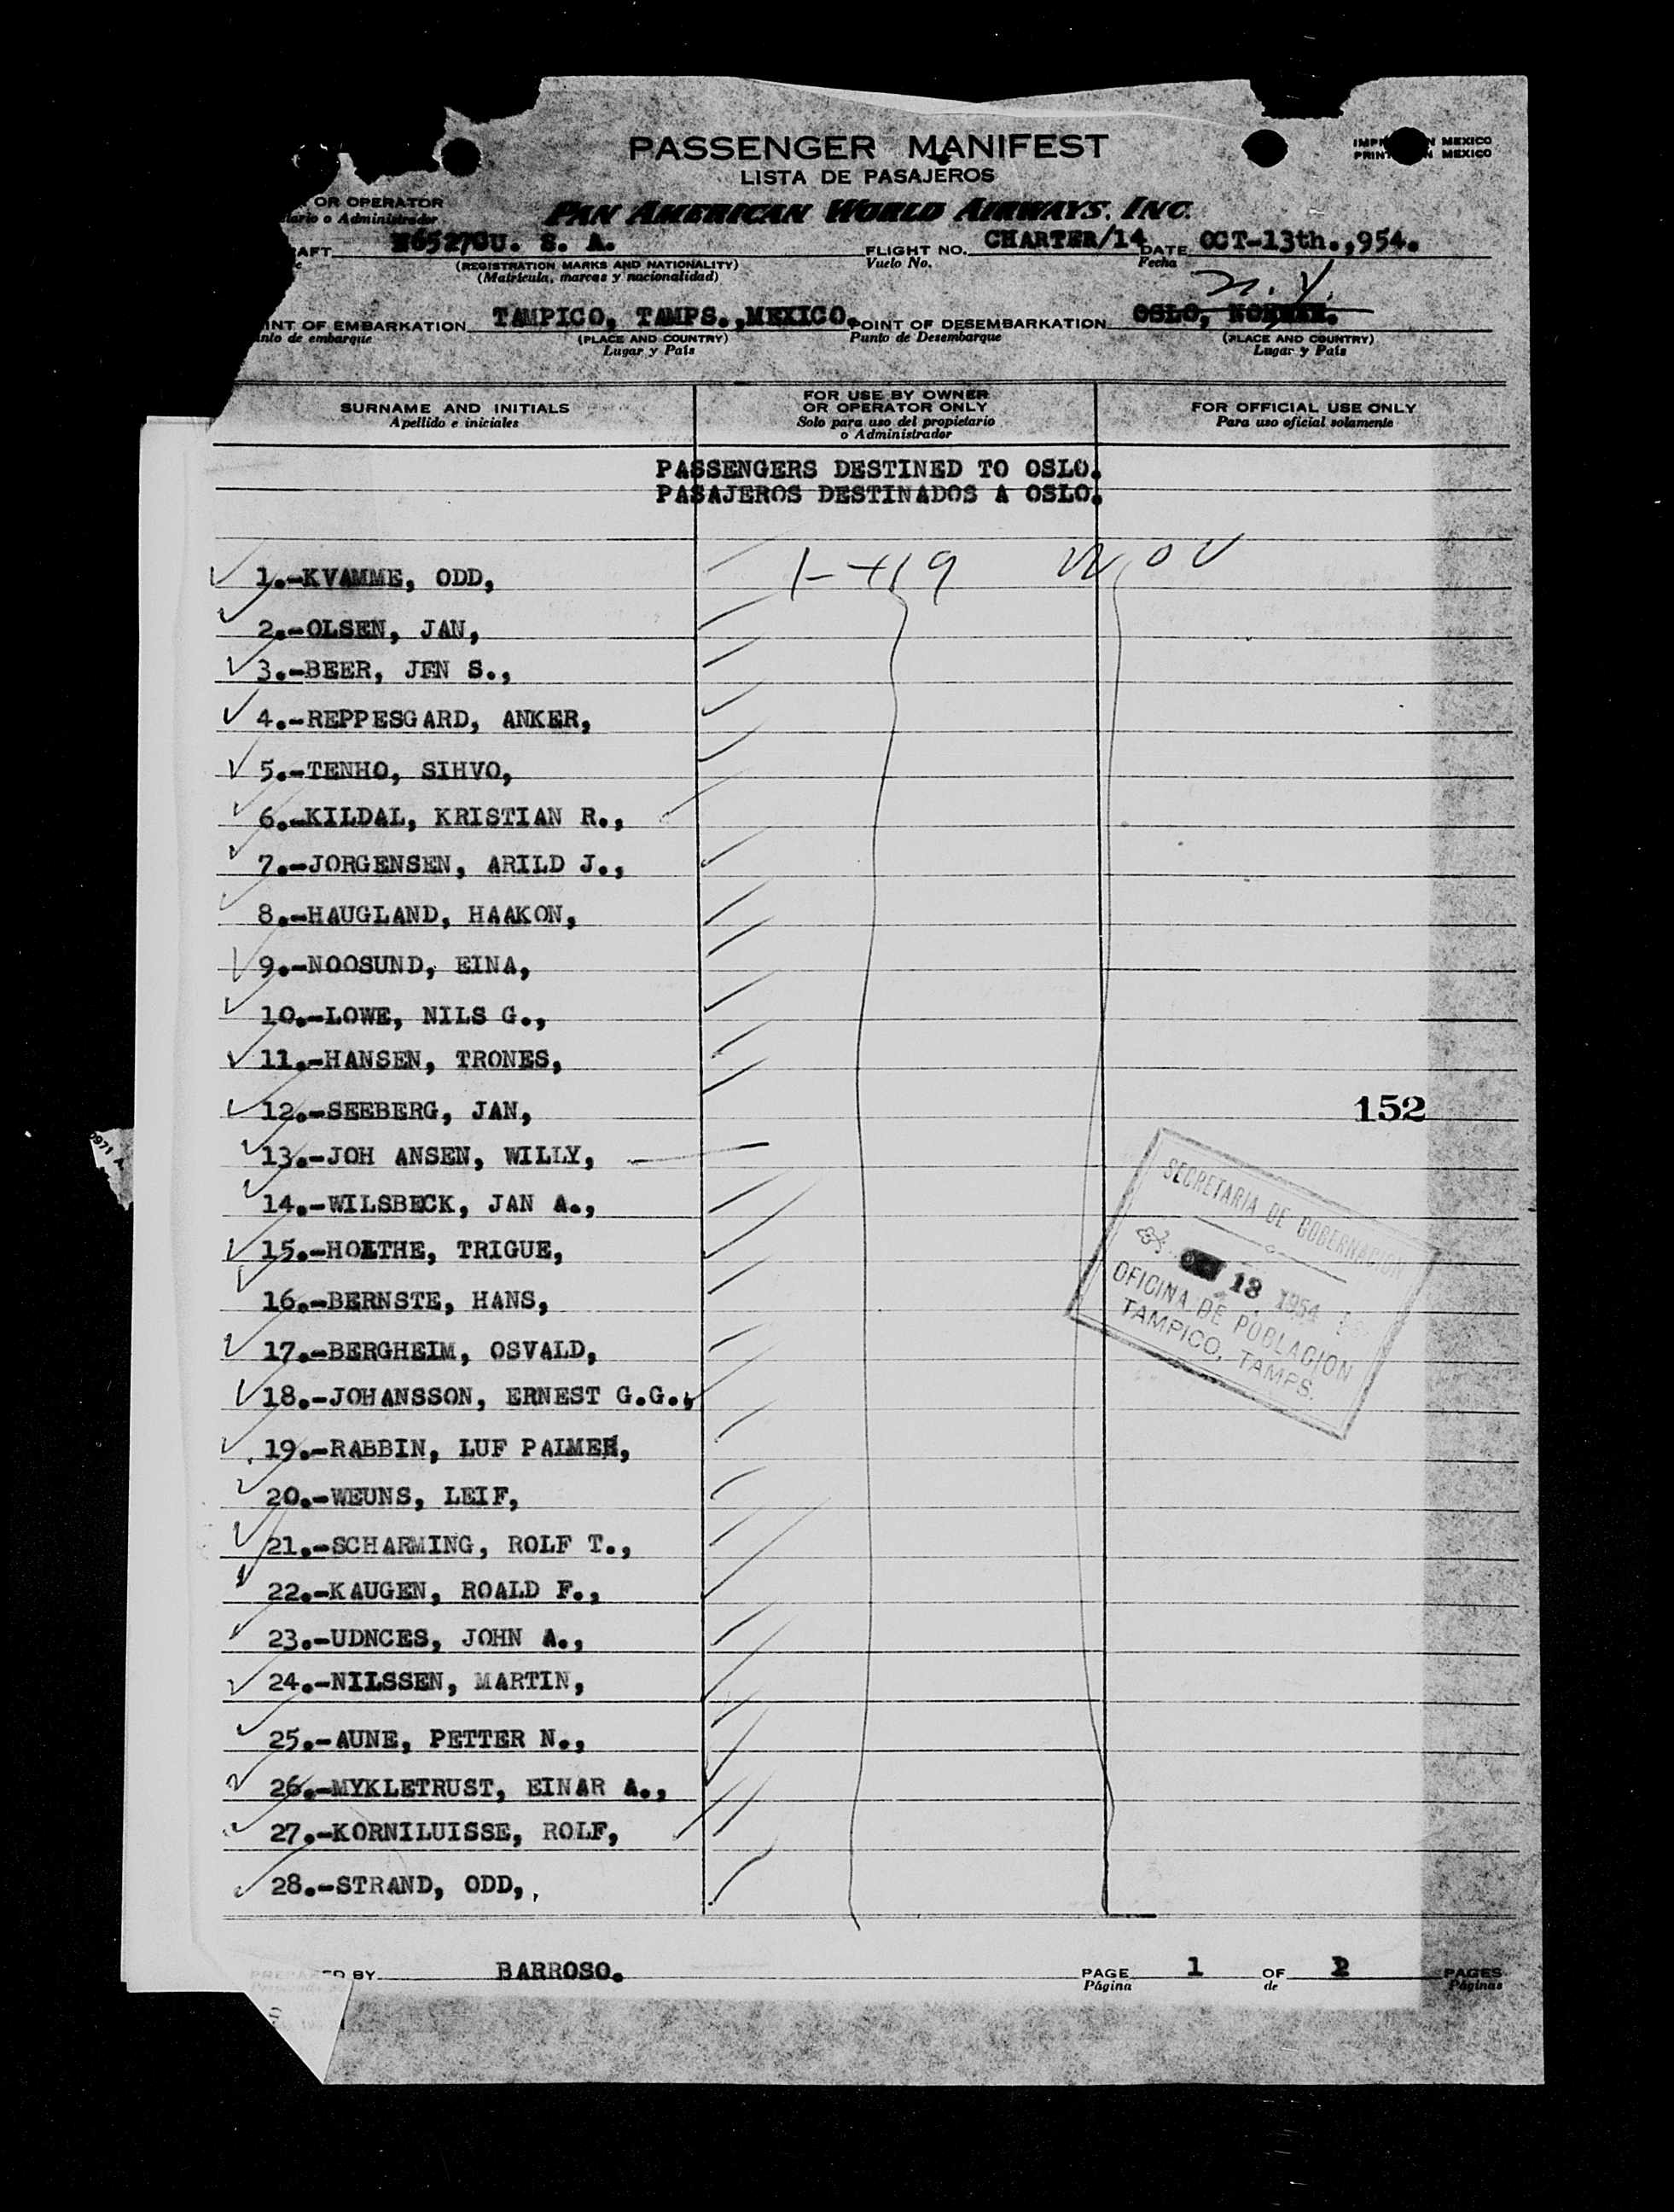 PASSENGER MANIFEST
LISTA DE PASAJEROS
IMPR N MEXICO
PRINT N MEXICO
OR OPERATOR
tario o Administrador
PAN AMERICAN WORLD AIRWAYS, INC.
AFT N6527CU. S. A. FLIGHT NO. CHARTER/14 DATE OCT-13th.,954.
(REGISTRATION MARKS AND NATIONALITY) Vuelo No. Fecha
(Matrícula, marcas y nacionalidad)
n. y.
INT OF EMBARKATION TAMPICO, TAMPS.,MEXICO. POINT OF DESEMBARKATION OSLO, NORWAY.
nto de embarque (PLACE AND COUNTRY) Punto de Desembarque (PLACE AND COUNTRY)
Lugar y País Lugar y País
SURNAME AND INITIALS FOR USE BY OWNER OR OPERATOR ONLY FOR OFFICIAL USE ONLY
Apellido e iniciales Solo para uso del propietario o Administrador Para uso oficial solamente
PASSENGERS DESTINED TO OSLO.
PASAJEROS DESTINADOS A OSLO.
1.-KVAMME, ODD,
2.-OLSEN, JAN,
3.-BEER, JEN S.,
4.-REPPESGARD, ANKER,
5.-TENHO, SIHVO,
6.-KILDAL, KRISTIAN R.,
7.-JORGENSEN, ARILD J.,
8.-HAUGLAND, HAAKON,
9.-NOOSUND, EINA,
10.-LOWE, NILS G.,
11.-HANSEN, TRONES,
12.-SEEBERG, JAN,
152
13.-JOH ANSEN, WILLY,
14.-WILSBECK, JAN A.,
15.-HOLTHE, TRIGUE,
16.-BERNSTE, HANS,
17.-BERGHEIM, OSVALD,
18.-JOHANSSON, ERNEST G.G.,
19.-RABBIN, LUF PALMER,
20.-WEUNS, LEIF,
21.-SCHARMING, ROLF T.,
22.-KAUGEN, ROALD F.,
23.-UDNCES, JOHN A.,
24.-NILSSEN, MARTIN,
25.-AUNE, PETTER N.,
26.-MYKLETRUST, EINAR A.,
27.-KORNILUISSE, ROLF,
28.-STRAND, ODD,,
SECRETARIA DE GOBERNACION
OCT 13 1954
OFICINA DE POBLACION
TAMPICO, TAMPS.
BY BARROSO. PAGE 1 OF 2 PAGES
Página de Páginas